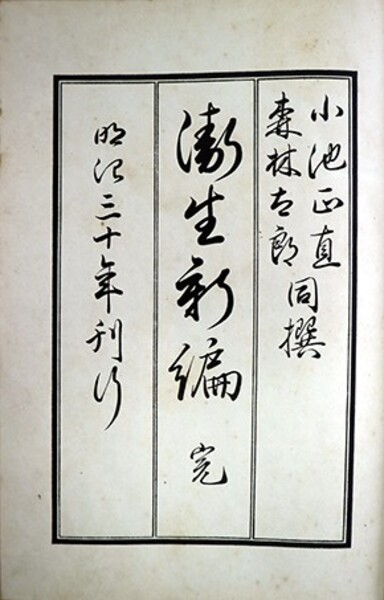 小池正直
森林太郎 同撰
衛生新編 完
明治三十年刊行